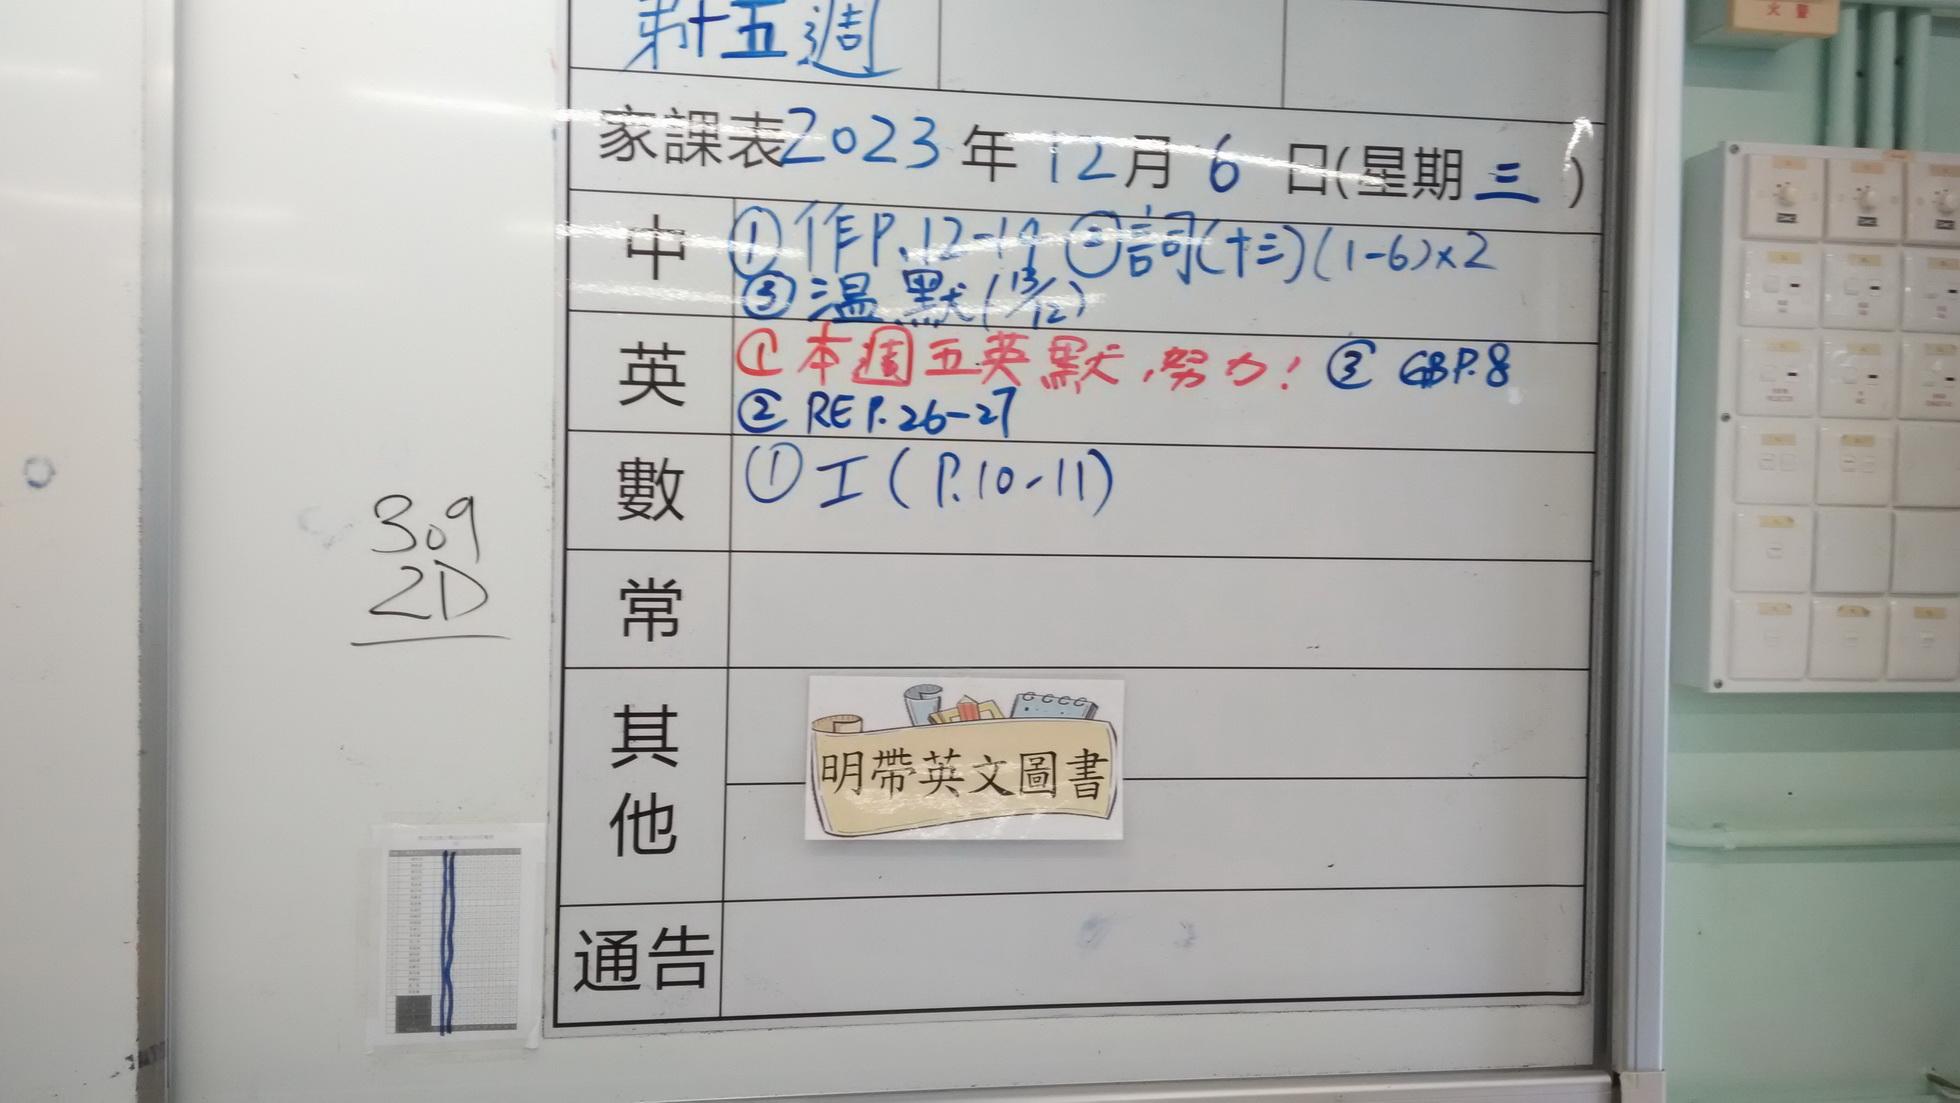 第十五週
火警
家課表2023年12月6日(星期三)
中
①作P.12-19 ②詞(十三)(1-6)x2
③溫默(13/12)
英
①本週五英默,努力! ③GBP.8
②REP.26-27
數
①工(P.10-11)
309
2D
常
其他
明帶英文圖書
通告